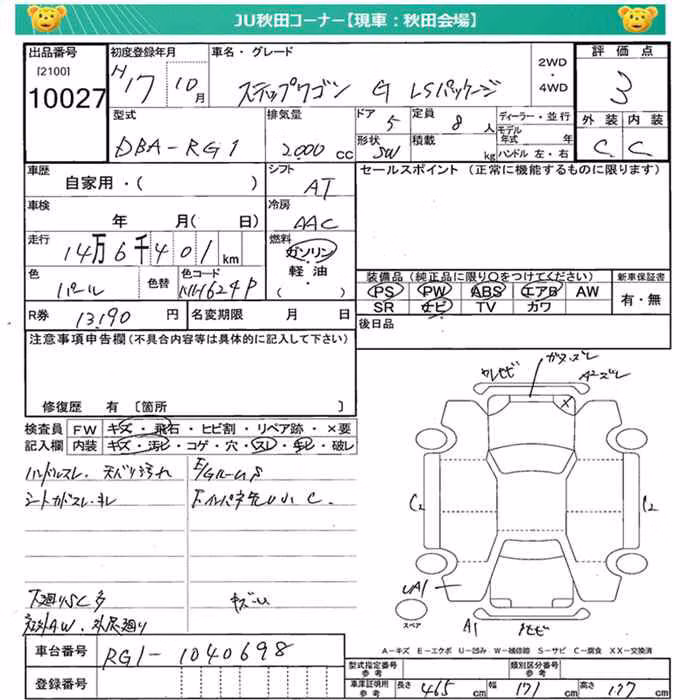 JU秋田コーナー【現車：秋田会場】
出品番号
[2100]
10027
初度登録年月
H17 10月
車名・グレード
ステップワゴン G LSパッケージ
2WD
・
4WD
評価点
3
外装 内装
C C
型式
DBA-RG1
排気量
2000 cc
ドア 5
形状 SW
定員 8 人
積載 kg
ディーラー・並行
モデル年式 年
ハンドル 左・右
車歴
自家用・( )
シフト
AT
車検
年 月( 日)
冷房
AAC
走行
14万6千401km
燃料
ガソリン
・
軽油
( )
色
パール
色替
色コード
NH624P
R券 13,190 円
名変期限 月 日
セールスポイント (正常に機能するものに限ります)
装備品 (純正品に限り○をつけてください)
PS PW ABS エアB AW
SR ナビ TV カワ
新車保証書
有・無
後日品
注意事項申告欄(不具合内容等は具体的に記入して下さい)
修復歴 有 〔箇所 〕
検査員 FW キズ・飛石・ヒビ割・リペア跡・×要
記入欄 内装 キズ・汚レ・コゲ・穴・スレ・キレ・破レ
ハンドルスレ. 天バリ汚れ
シートカドスレ・キレ
下廻りSC多
社外AW.
キズ
C2
UA1
A1
スペア
A-キズ E-エクボ U-凹み W-補修跡 S-サビ C-腐食 XX-交換済
車台番号 RG1-1040698
登録番号
型式指定番号
参考
類別区分番号
参考
車庫証明用
参考
長さ 465 cm 幅 171 cm 高さ 177 cm